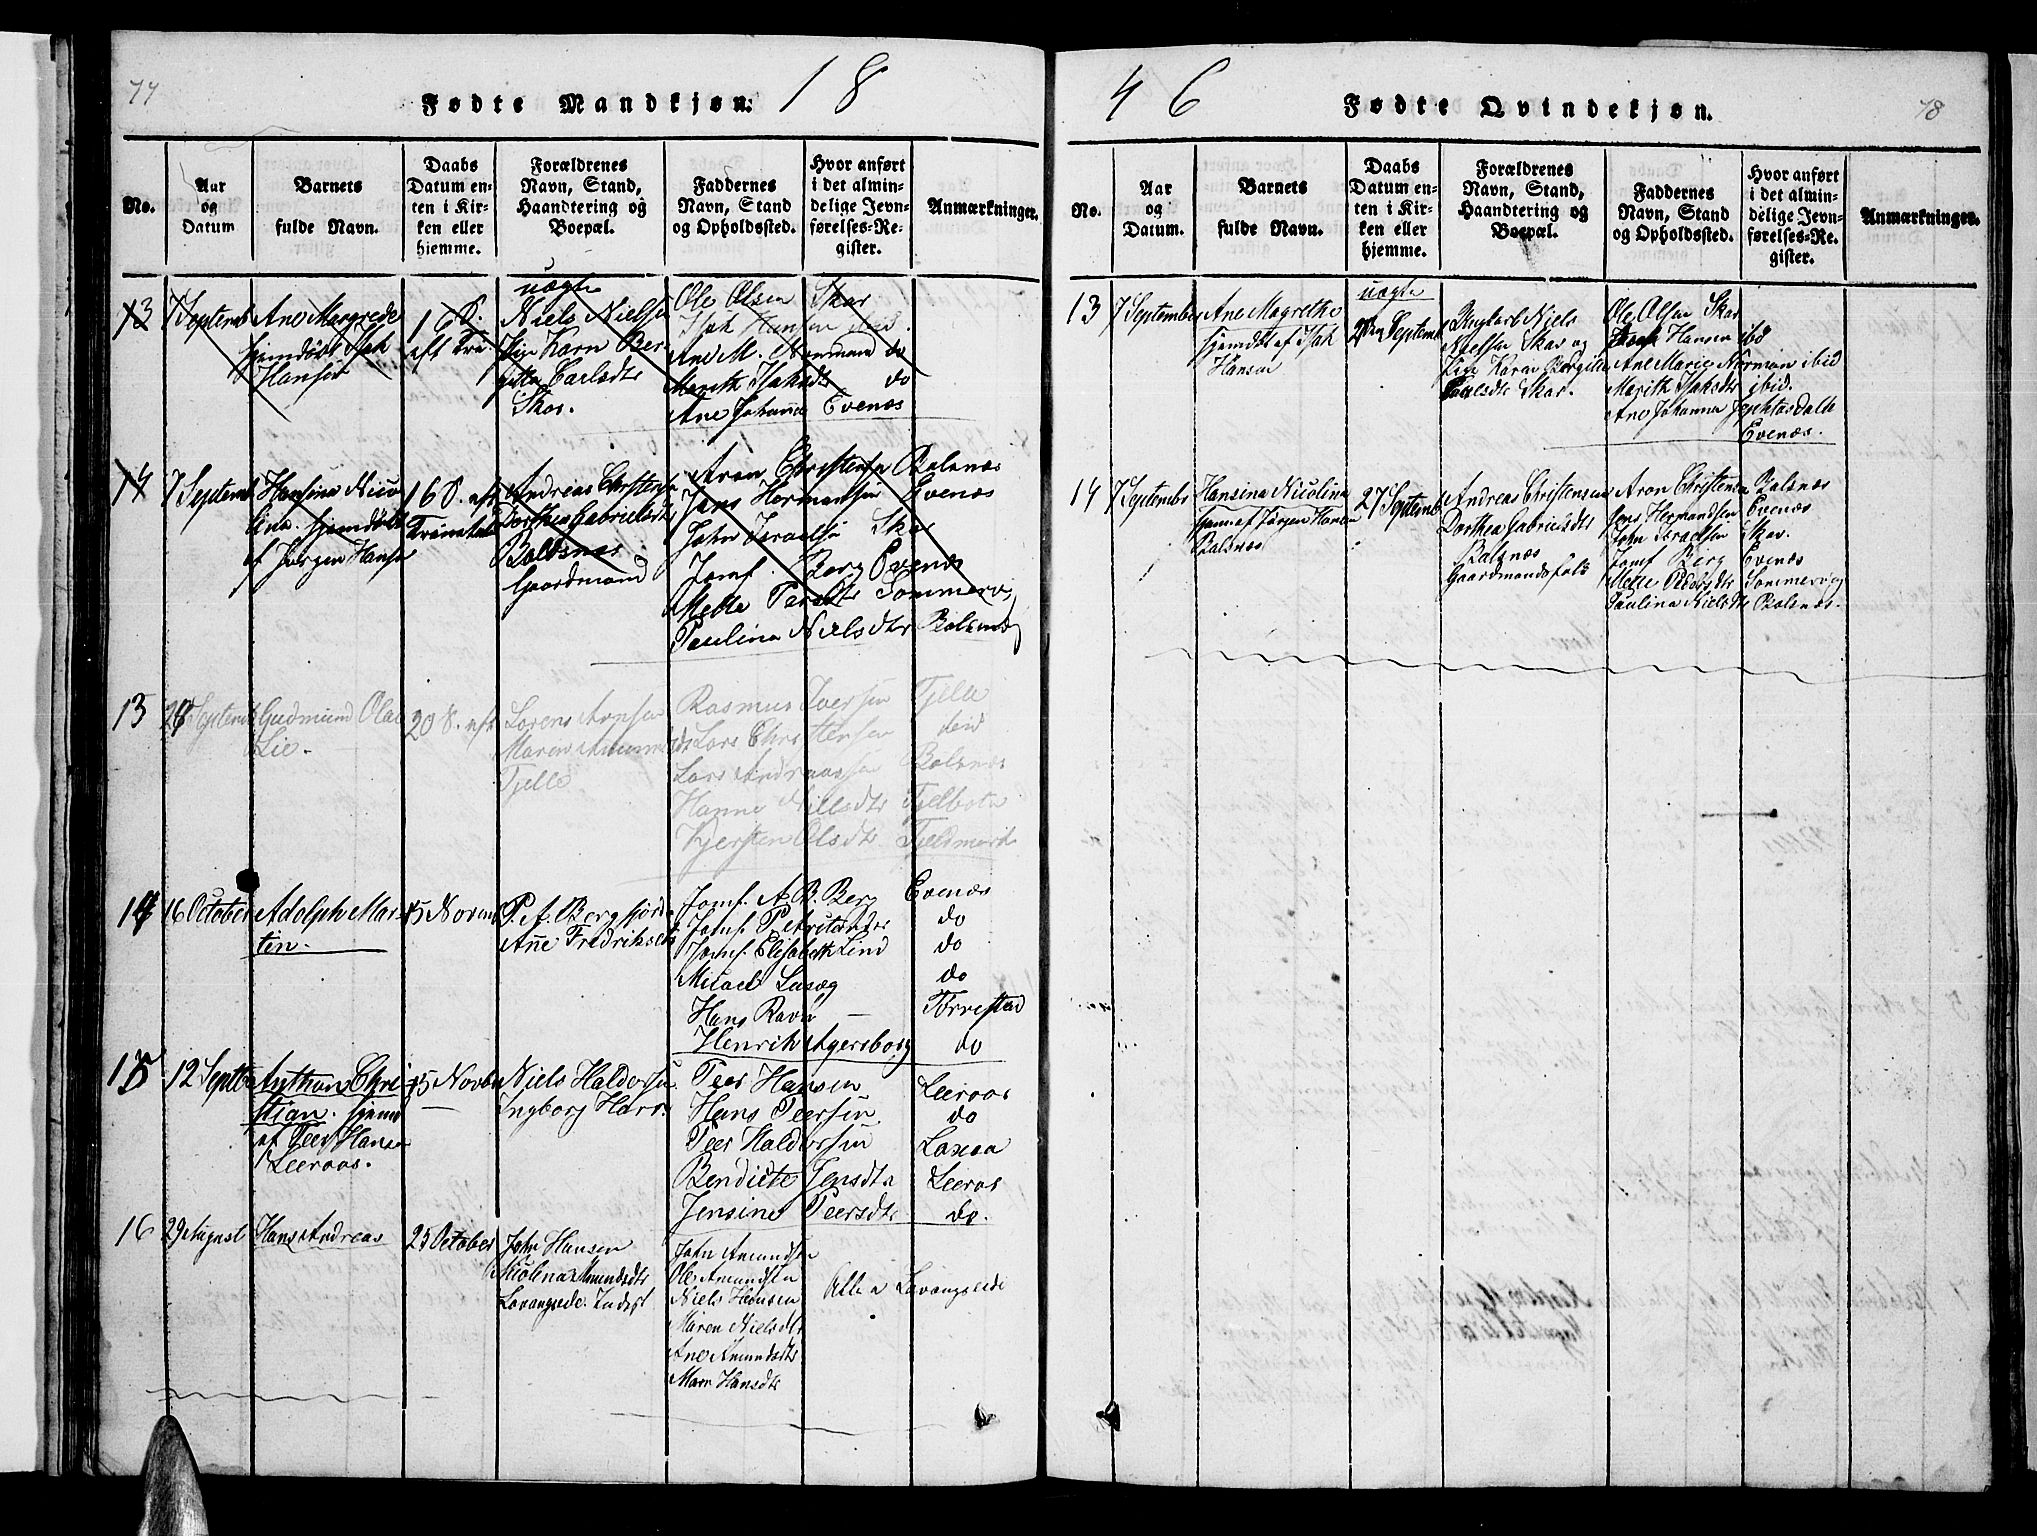 77
Fødte Mandkjøn. 18
No.
Aar
og
Datum
Barnets
fulde Navn.
Daabs
Datum en-
ten i Kir-
ken eller
hjemme.
Forældrenes
Navn, Stand,
Haandtering og
Boepæl.
Faddernes
Navn, Stand
og Opholdssted.
Hvor anført
i det almin-
delige Jevn-
førelses-Re-
gister.
Anmærkninger.
13 7 Septemb Ane Margrede
hjemdøbt Isak
Hansen
uægte
Niels Nielsen
Pige Karn Ber-
gitta Carlsdtr
Skar.
Ole Olsen Skar
Isak Hansen ibid.
Ane M. Normand do
Marith Isaksdtr do
Ane Johanna Evenæs
14 7 Septemb Hansina Nico-
lina. hjemdøbt
af Jørgen Hansen
16 S. eft
Trinitat
Andreas Christensen
Dorthea Gabrielsdtr
Balsnæs
Gaardmand
Aron Christensen Balsnæs
Jens Hermansen Evenæs
John Israelsen Skar
Jomf. Berg Evenæs
Mette Pedersdtr Sommervig
Paulina Nielsdtr Balsnæs
13 Septemb Gudmund Olai
Lie.
20 S. eft
Lorens Arnsen
Maren Amundsdtr
Tjelle
Rasmus Iversen Tjelle
Lars Christensen ibid
Lars Andreassen Balsnæs
Hanne Nilsdtr Tjelbotn
Kjersten Olsdtr Tjeldmark
14 16 October Adolph Mar-
tin.
15 Novem
P. A. Bergfjord
Ane Fredriksen
Jomf. A. B. Berg Evenæs
Jomf. Petri do
Jomf. Elisabeth Lind do
Micael do
Hans Ravn — Tørrestad
Henrik Agersborg do
15 12 Septb Anthon Chri-
stian. hjemd
af Peer Hansen
Leeraas.
15 Novbr
Niels Haldorsen
Ingborg Hans
Peer Hansen Leeraas
Hans Peersen do
Peer Haldorsen Laxaa
Bendicte Jensdtr Leeros
Jensine Peersdtr do.
16 29 August Hans Andreas
25 October
John Hansen
Nicolina Amundsdtr
Lavangseide. Inderst
John Amundsen
Ole Amundsen
Niels Hansen
Maren Nielsdtr
Ane Amundsdtr
Maren Hansdtr
Alle a Lavangseide
46 Fødte Qvindekjøn.
78
No.
Aar
og
Datum.
Barnets
fulde Navn.
Daabs
Datum en-
ten i Kir-
ken eller
hjemme.
Forældrenes
Navn, Stand,
Haandtering og
Boepæl.
Faddernes
Navn, Stand
og Opholdssted.
Hvor anført
i det almin-
delige Jevn-
førelses-Re-
gister.
Anmærkninger.
13 7 September Ane Magrethe
hjemdøbt af Isak
Hansen
uægte
27 Septemb
Ungkarl Niels
Nielsen Skar og
Pige Karen Bergitte
Carlsdtr Skar.
Ole Olsen Skar
Isaak Hansen ibd
Ane Marie Norman ibid
Marith Isaksdtr ibid.
Ane Johanna
Evenæs.
14 7 Septembr Hansina Nicolina
af Jørgen Hansen
Balsnæs
27 Septemb
Andreas Christensen
Dorthea Gabrielsdtr
Balsnæs
Gaardmandsfolk
Aron Christensen Balsnæs
Jens Hermandsen Evenæs
John Israelsen Skar.
Jomf Berg Evenæs
Mette Pedersdtr Sommervig
Paulina Nielsdtr Balsnæs.